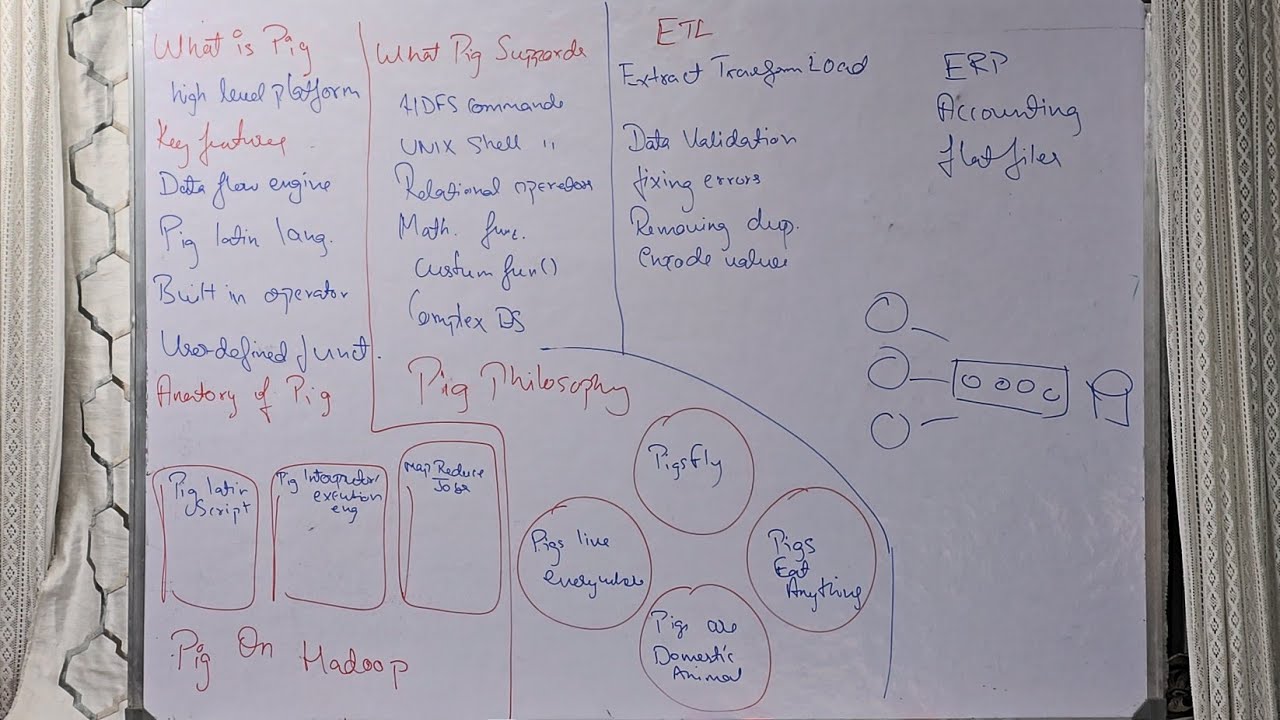 What is Pig
high level platform
Key features
Data flow engine
Pig latin lang.
Built in operator
User defined funct.
Anatory of Pig
Pig latin
Script
Pig Interpretor/
execution
eng
Map Reduce
Jobs
Pig On Hadoop
What Pig Supports
HDFS commands
UNIX Shell "
Relational operator
Math. func.
Custum fun()
Complex DS
Pig Philosophy
Pigs fly
Pigs live
everywhere
Pigs
Eat
Anything
Pigs are
Domestic
Animal
ETL
Extract Transform Load
Data Validation
fixing errors
Removing dup.
Encode values
ERP
Accounting
flat files